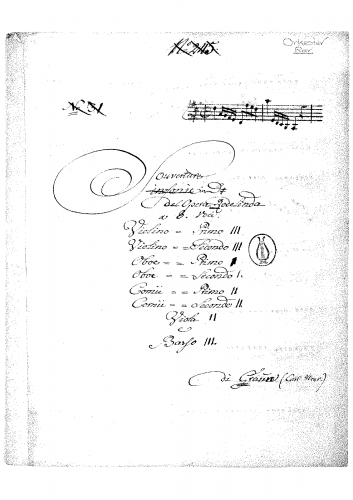 No 245
Orkester
Rar.
No 31
Ouverture
Sinfonie in D♯
del Opera Rodelinda
a 8. Voci
Violino = Primo III
Violino = Secondo III
Oboe = = Primo I
Oboe = = Secondo I.
Cornü = = Primo II
Cornü = = Secondo II
Viola II
e
Basso III.
di Graun (Carl Heinr.)